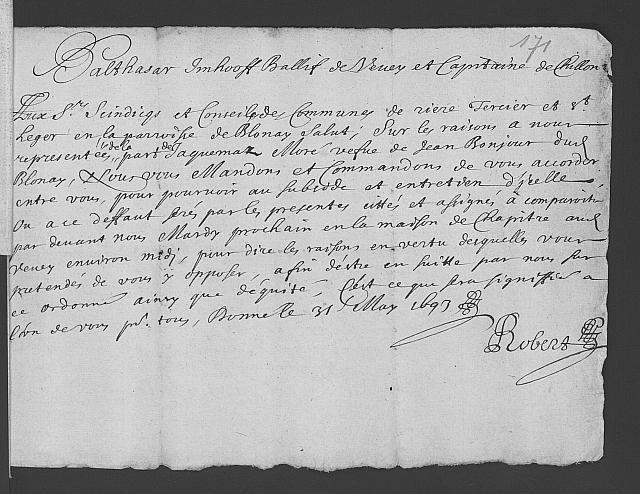 171
Balthasar Imhooff Ballif de Vevey et Capitaine de Chillon
Aux Srs Scindiqs et Conseils des Communes de riere Tercier et St
Leger en la parroisse de Blonay Salut, Sur les raisons a nous
representées, de la part de Jaquemaz Moré vefve de Jean Bonjour dud
Blonay, Nous vous Mandons et Commandons de vous accorder
entre vous, pour pourvoir au subside et entretien d'jcelle,
Ou a ce deffaut serés par les presentes cittés et assignés à comparoitre
par devant nous Mardy prochain en la maison de Chapitre aud
Vevey environ midj, pour dire les raisons en vertu desquelles vous
pretendés de vous y opposer, afin d'estre en suitte par nous sur
ce ordonné ainsy que d'equité, C'est ce que sera signiffié a
l'un de vous pr. tous, Donné le 31 May 1693
Robert